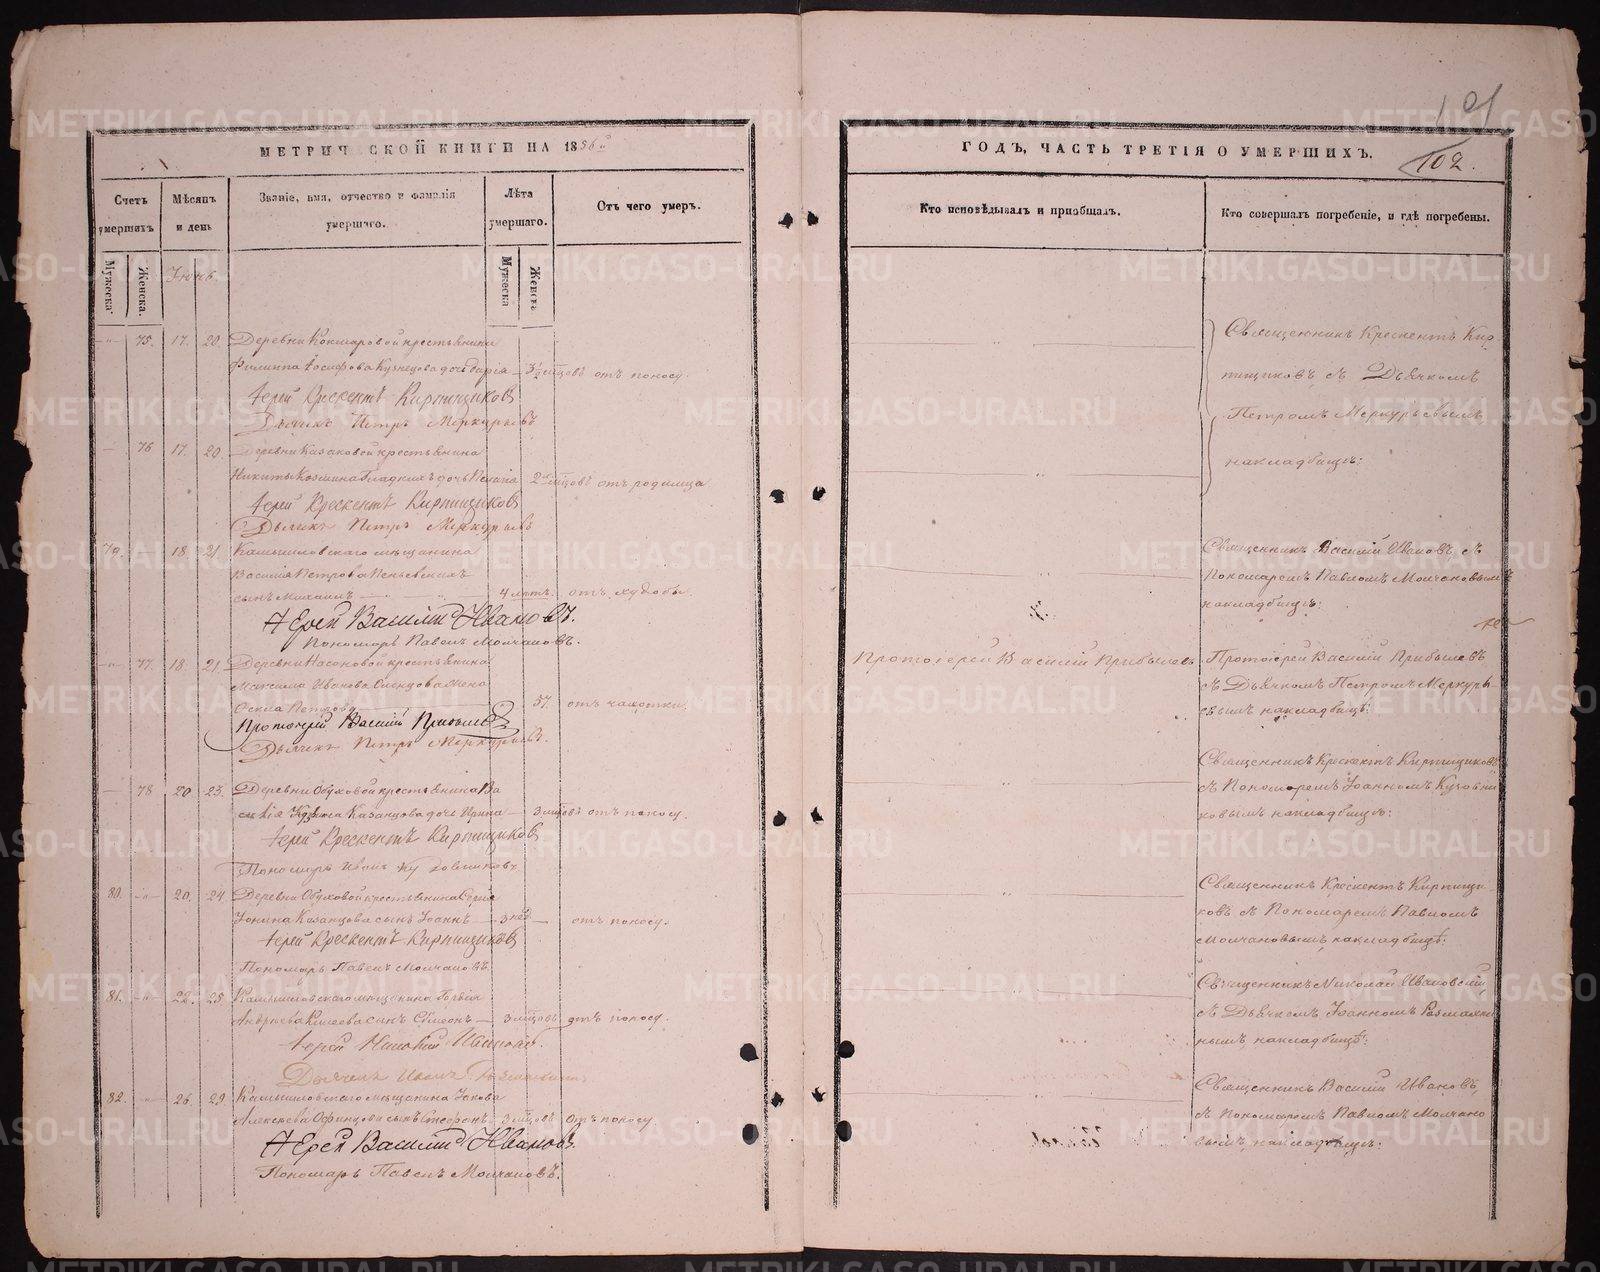 101
102.
МЕТРИЧЕСКОЙ КНИГИ НА 1856й
ГОДЪ, ЧАСТЬ ТРЕТІЯ О УМЕРШИХЪ.
Счетъ умершихъ
Мѣсяцъ и день
Званіе, имя, отчество и фамилія умершаго.
Лѣта умершаго.
Отъ чего умеръ.
Кто исповѣдывалъ и пріобщалъ.
Кто совершалъ погребеніе, и гдѣ погребены.
Мужеска
Женска.
Іюнь.
Мужеска
Женска
75. 17. 20. Деревни крестьянина
Филиппа Іосифова Кузнецова дочь Дарія — 3½ мѣсцовъ отъ поносу.
Іерей Крескентъ Кирпищиковъ
Дьячекъ Петръ Меркурьевъ
Священникъ Крескентъ Кир
пищиковъ, съ Дьячкомъ
Петромъ Меркурьевымъ
на кладбищѣ:
76 17. 20. Деревни Казаковой крестьянина
Никиты Козмина Гладкихъ дочь 2 мѣсцовъ отъ родимца
Іерей Крескентъ Кирпищиковъ
Дьячекъ Петръ Меркурьевъ
79. 18. 21. Камышловскаго мѣщанина
Василія Петрова
сынъ Михаилъ — 4 лѣтъ. отъ худобы.
Іерей Василій Ивановъ.
Пономарь Павелъ Молчановъ.
Священникъ Василій Ивановъ, съ
Пономаремъ Павломъ Молчановымъ
на кладбищѣ:
77. 18. 21. Деревни Насоновой крестьянина
Максима Иванова жена
Петрова 57. отъ чахотки.
Протоіерей Василій Прибылевъ
Дьячекъ Петръ Меркурьевъ.
Протоіерей Василій Прибылевъ
Протоіерей Василій Прибылевъ
съ Дьячкомъ Петромъ Меркурь-
евымъ на кладбищѣ:
78 20 23. Деревни Обуховой крестьянина Ва
силія Казанцова дочь Ирина — 3 мѣсцовъ отъ поносу.
Іерей Крескентъ Кирпищиковъ
Пономарь Иванъ
Священникъ Крескентъ Кирпищиковъ
съ Пономаремъ Іоанномъ
ковымъ на кладбищѣ:
80. 20. 24. Деревни Обуховой крестьянина
Казанцова сынъ Іоаннъ — 3 нед. — отъ поносу.
Іерей Крескентъ Кирпищиковъ
Пономарь Павелъ Молчановъ
Священникъ Крескентъ Кирпищи
ковъ съ Пономаремъ Павломъ
Молчановымъ, на кладбищѣ:
81. 22. 25. Камышловскаго мѣщанина
Андреева сынъ Сѵмеонъ — 3 мѣсцовъ отъ поносу.
Іерей Николай Ивановскій
Дьячекъ Иванъ
Священникъ Николай Ивановскій,
съ Дьячкомъ Іоанномъ
нымъ, на кладбищѣ:
82. 26. 29. Камышловскаго мѣщанина Іакова
Алексѣева сынъ Стефанъ — 3 мѣсцовъ Отъ поносу.
Іерей Василій Ивановъ
Пономарь Павелъ Молчановъ.
Священникъ Василій Ивановъ,
съ Пономаремъ Павломъ Молчано
вымъ, на кладбищѣ:
METRIKI.GASO-URAL.RU